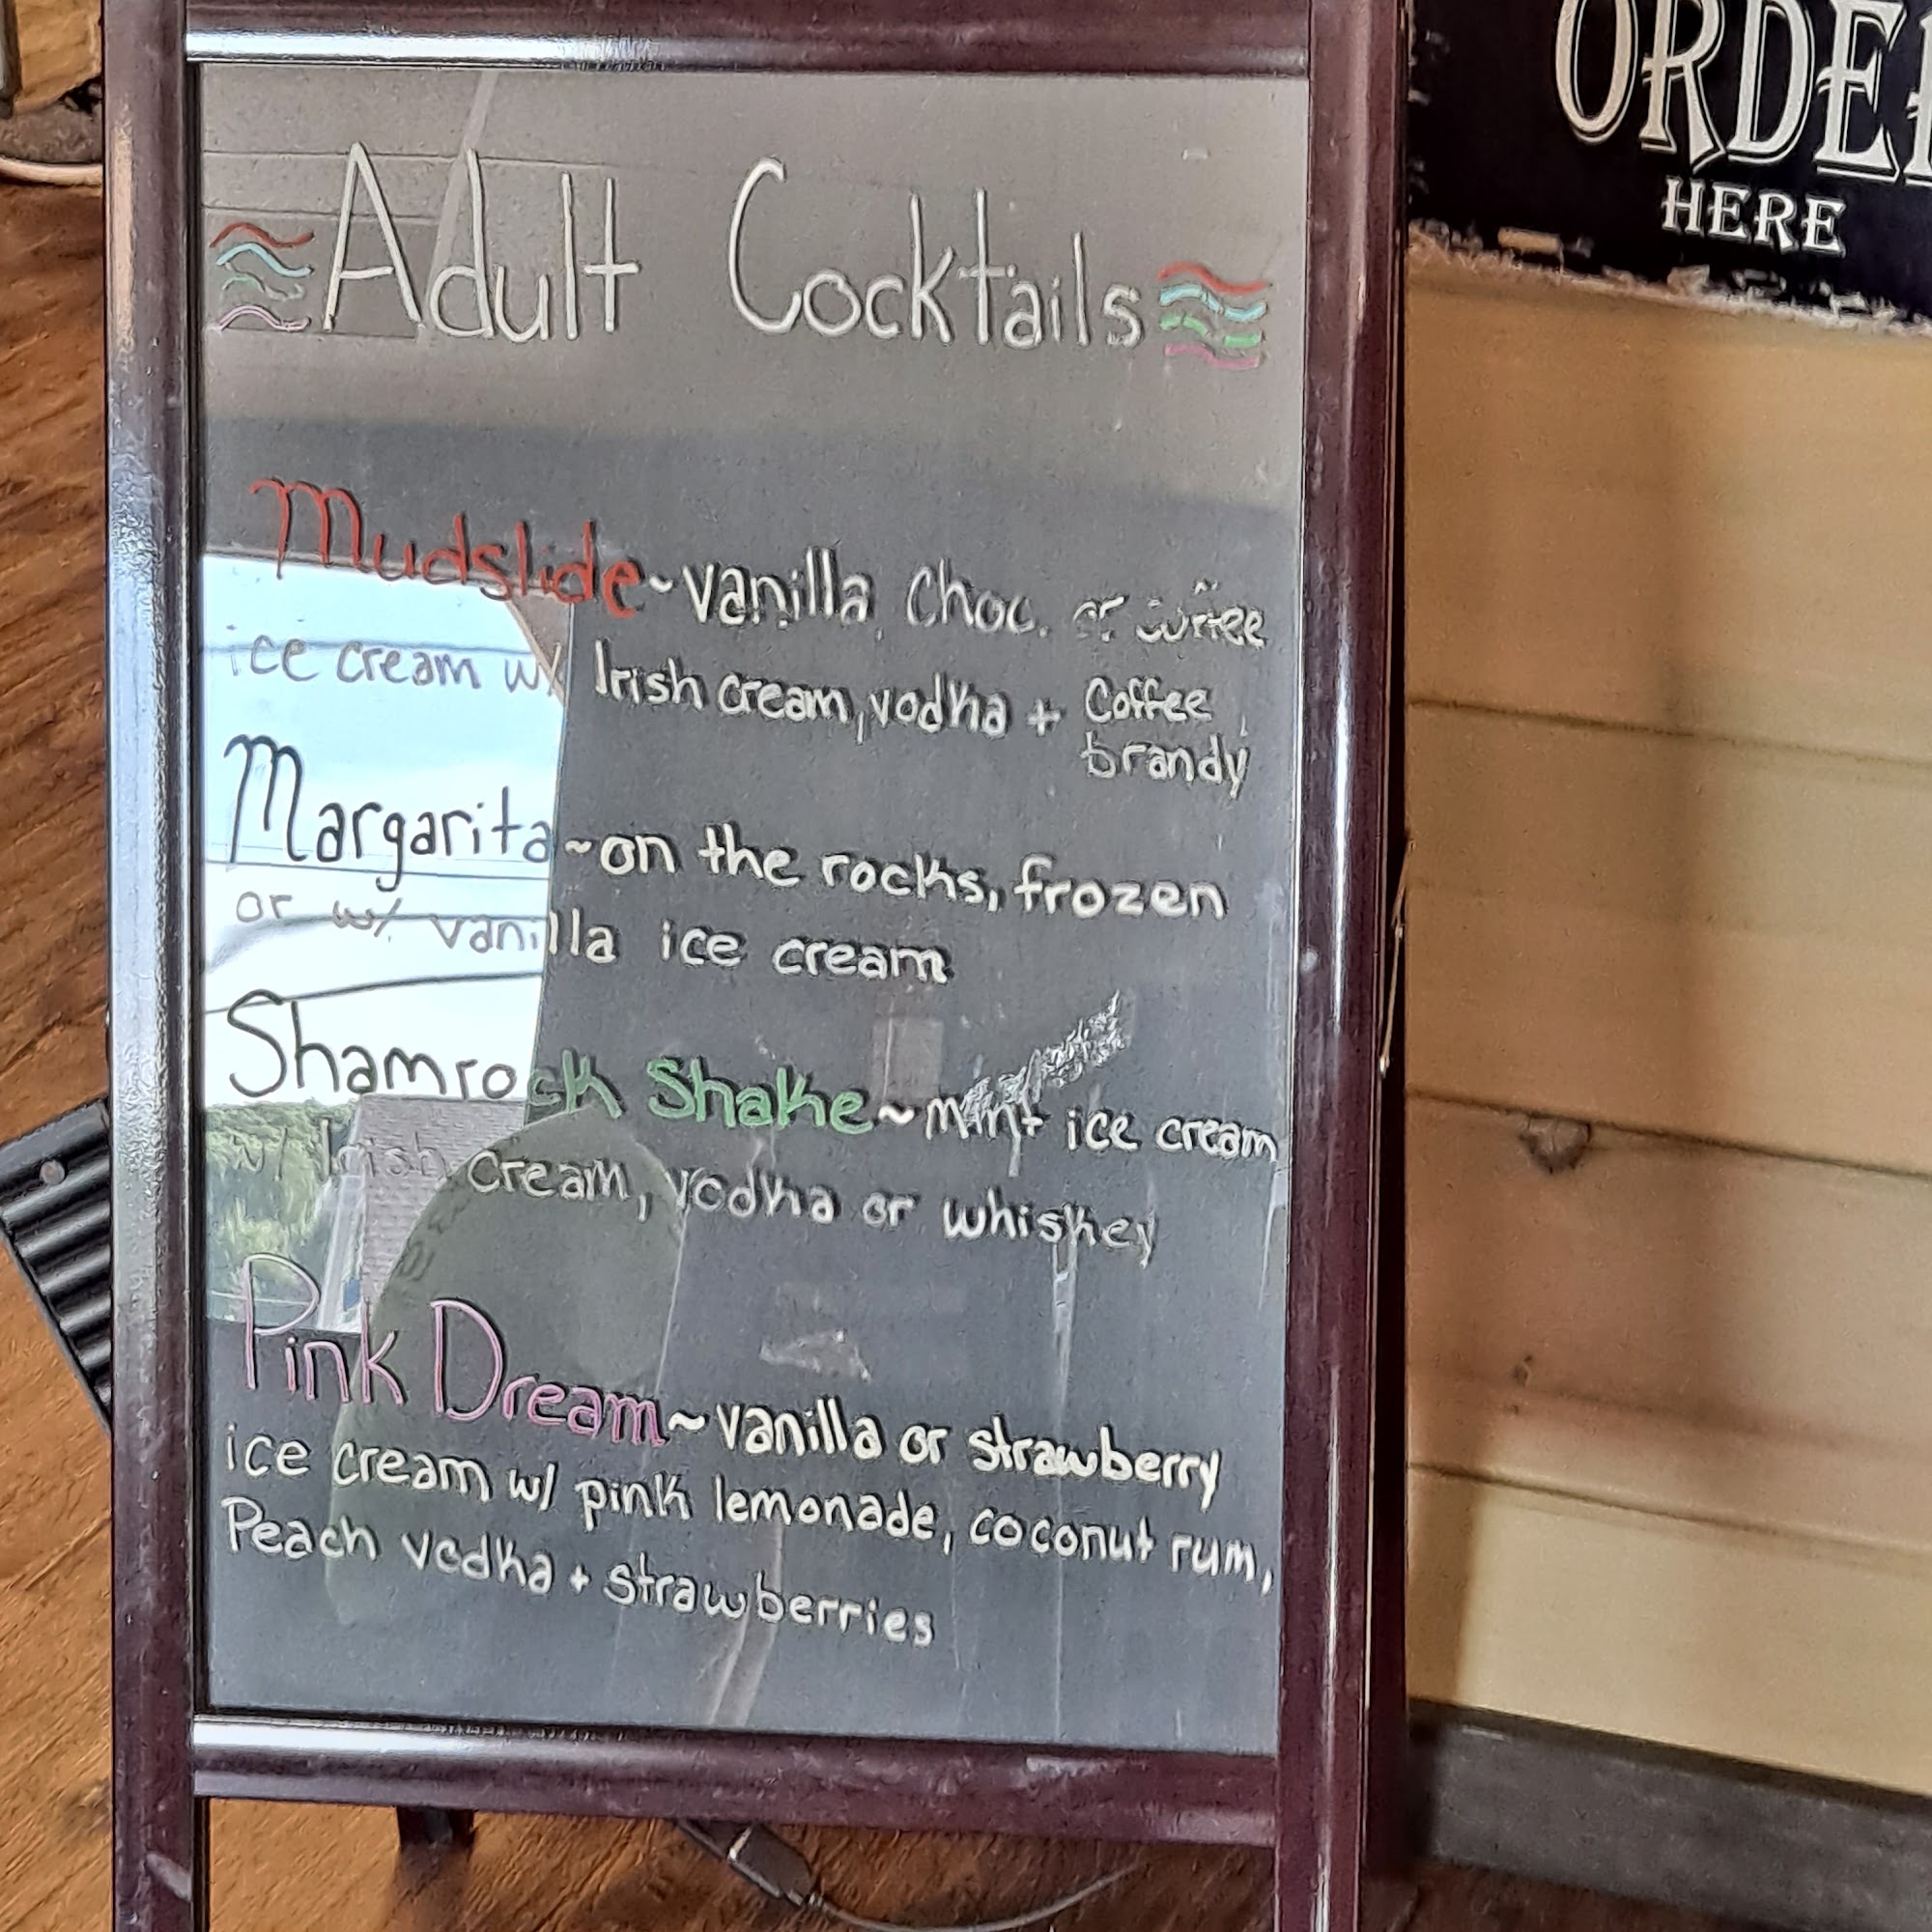 Adult Cocktails
Mudslide ~ vanilla, choc. or coffee
ice cream w/ Irish cream, vodka + Coffee
brandy
Margarita ~ on the rocks, frozen
or w/ vanilla ice cream
Shamrock Shake ~ mint ice cream
w/ Irish cream, vodka or whiskey
Pink Dream ~ vanilla or strawberry
ice cream w/ pink lemonade, coconut rum,
Peach vodka + strawberries
HERE